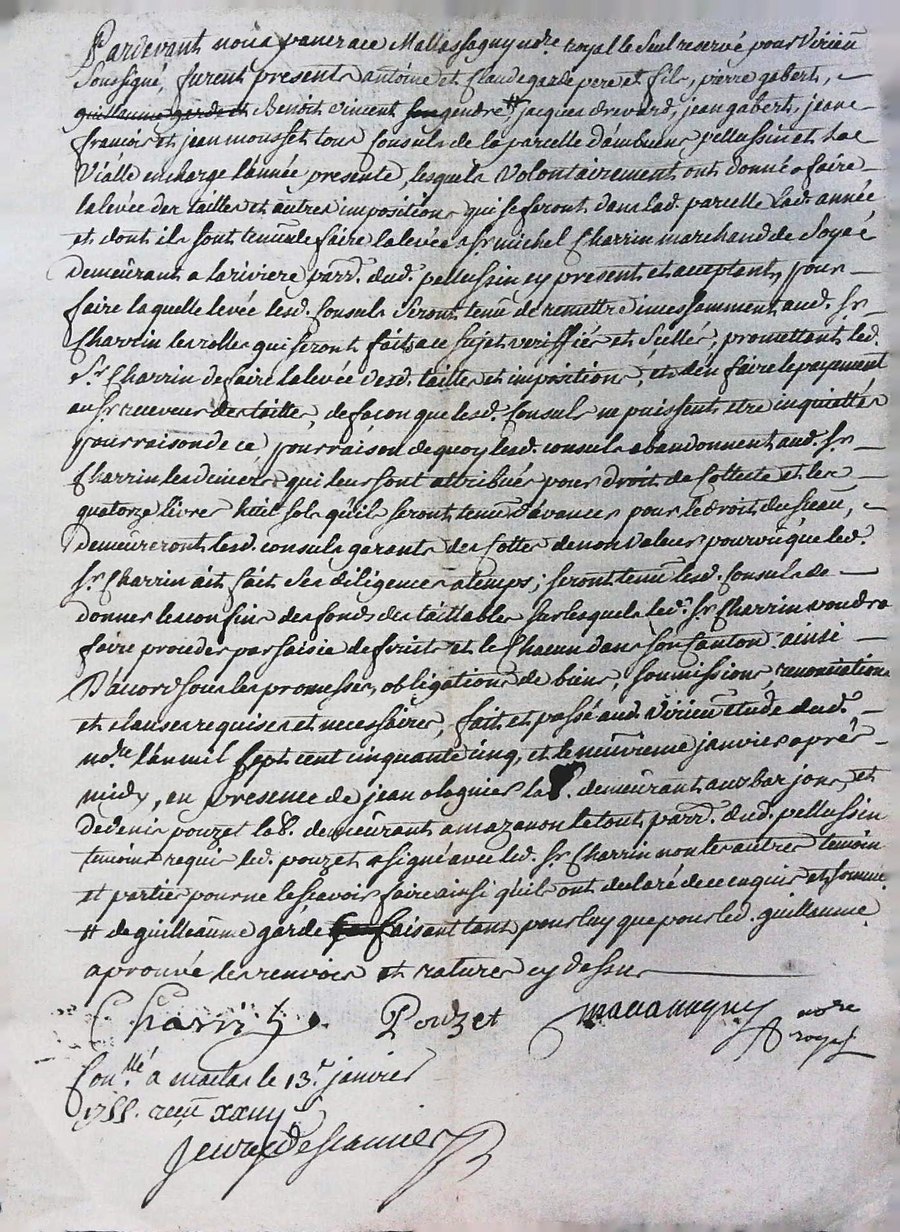 Pardevant nous pancrace Mallassagny no.re royal le seul reservé pour Virieu
Soussigné, furent presents antoine et claude garde pere et fils, pierre gabert,
guillaume garde et Benoit vincent son gendre # jacques drevard, jean gabert, jean
francois et jean mousset tous Consuls de la parcelle d'ambuens pellussin et
Vialle en charge l'année presente, lesquels Volontairement ont donné a faire
la levée des tailles et autres impositions qui se feront dans lad. parcelle lad. année
et dont ils sont tenus de faire la levée a Sr. michel Charrin marchand de Soye
demeurant a la riviere parr. dud. pellussin cy present et acceptant, pour
faire laquelle levée lesd. Consuls seront tenus de remettre incessamment aud. Sr.
Charrin les rolles qui seront faits a ce sujet veriffiés et scellés, promettant led.
Sr. Charrin de faire la levée desd. tailles et impositions, et d'en faire le payement
au Sr. receveur des tailles, de façon que lesd. Consuls ne puissent etre inquiettés
pour raison de ce, pour raison de quoy lesd. consuls abandonnent aud. Sr.
Charrin les deniers qui leur sont attribués pour droit de Collecte et les
quatorze livres huit sols qu'ils seront tenus d'avancer pour le droit du sceau,
demeureront lesd. consuls garants des Cottes de non Valeur pourvu que led.
Sr. Charrin ait fait ses diligences a temps; seront tenus lesd. Consuls de
donner les confins des fonds des taillables sur lesquels led. Sr. Charrin voudra
faire proceder par saisie de fruits et le Chacun dans son Canton ainsi
D'acord sous les promesses, obligations de biens, soumissions, renonciations
et clauses requises et necessaires, fait et passé aud. Virieu etude dud.
no.re l'an mil sept cent cinquante cinq, et le neuvieme janvier apres
midy, en presence de jean olagnier lab.r demeurant aux barjons, et
de denis pouzet lab.r demeurant a mazanon le tout parr. dud. pellussin
temoins requis led. pouzet a signé avec led. Sr. Charrin non les autres temoin
et parties pour ne le scavoir faire ainsi qu'ils ont declaré de ce enquis et sommés
# de guilleaume garde faisant tant pour luy que pour led. guillaume
aprouvé les renvois et ratures cy dessus
Charrin Pouzet Mallassagny no.re
royal
Con.llé a maclas le 13.e janvier
1755. reçu